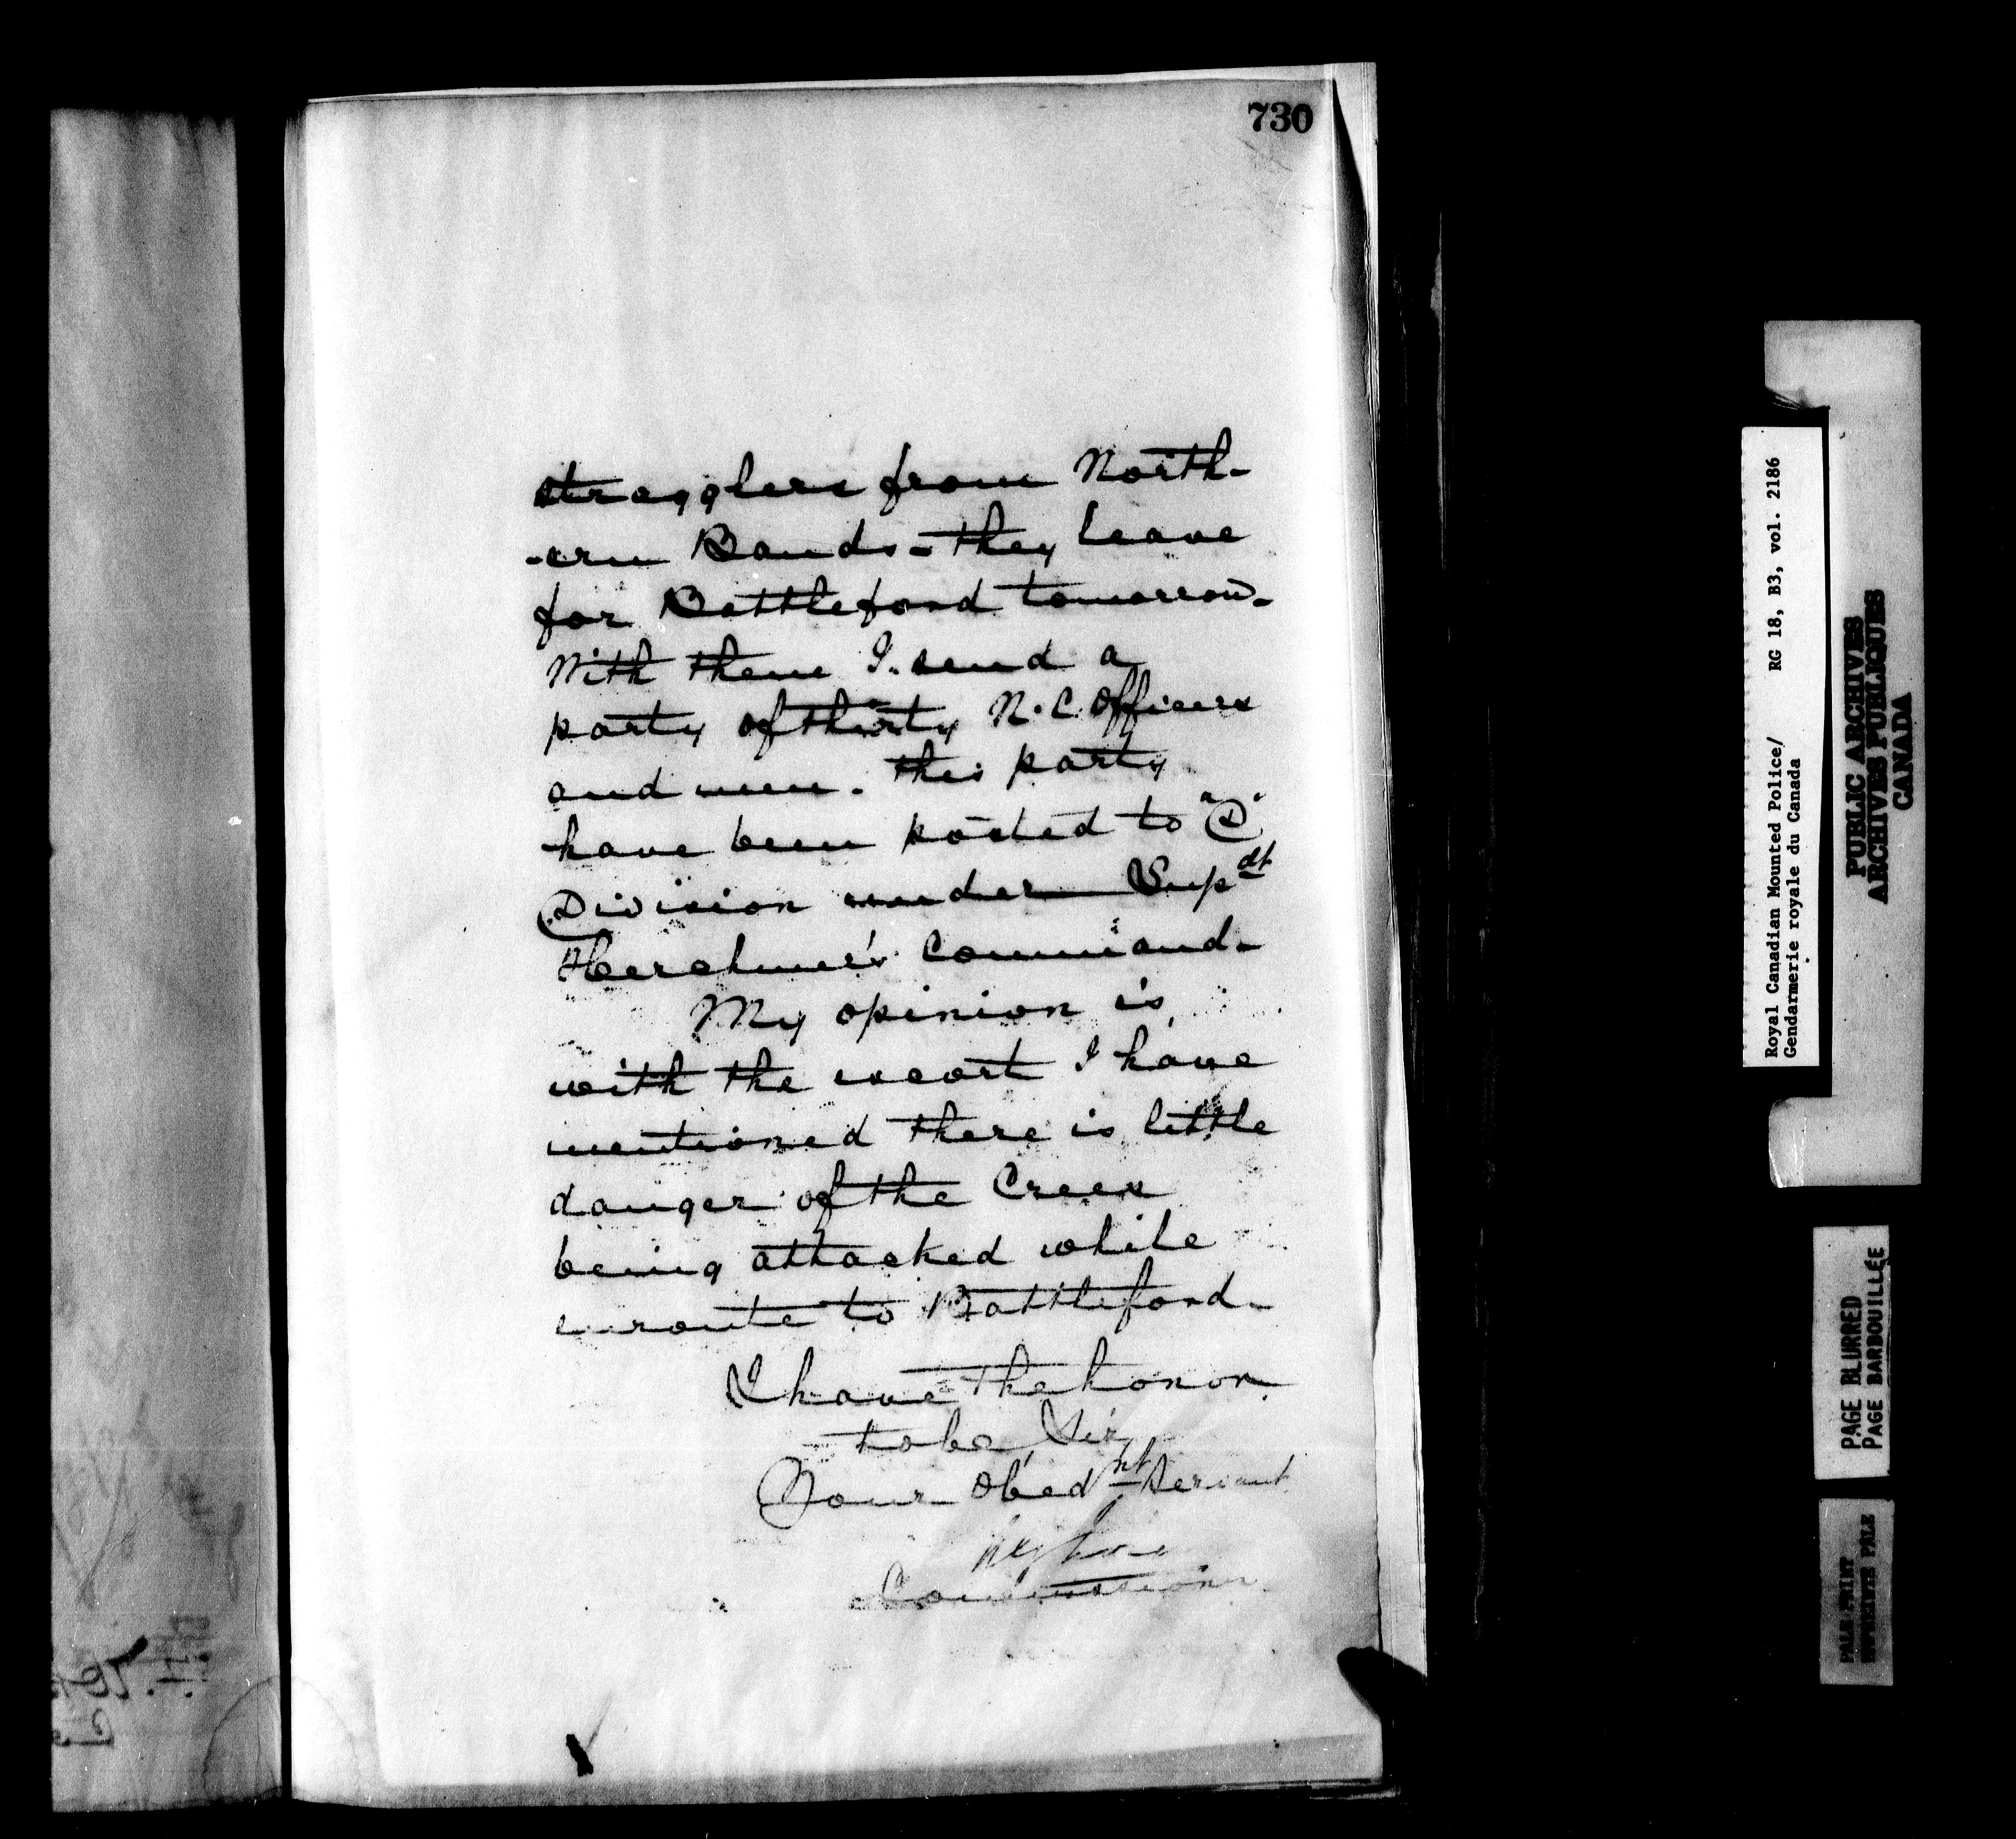 730
stragglers from North-
-ern Bands - they leave
for Battleford tomorrow -
With them I send a
party of thirty N.C. Officers
and men. This party
have been posted to "D"
Division under Supdt
Herchmer's Command -
My opinion is
with the escort I have
mentioned there is little
danger of the Crees
being attacked while
enroute to Battleford -
I have the honor
to be, Sir
Your Obednt Servant
Commissioner
Royal Canadian Mounted Police/ RG 18, B3, vol. 2186
Gendarmerie royale du Canada
PUBLIC ARCHIVES
ARCHIVES PUBLIQUES
CANADA
PAGE BLURRED
PAGE BARBOUILLÉE
PALE